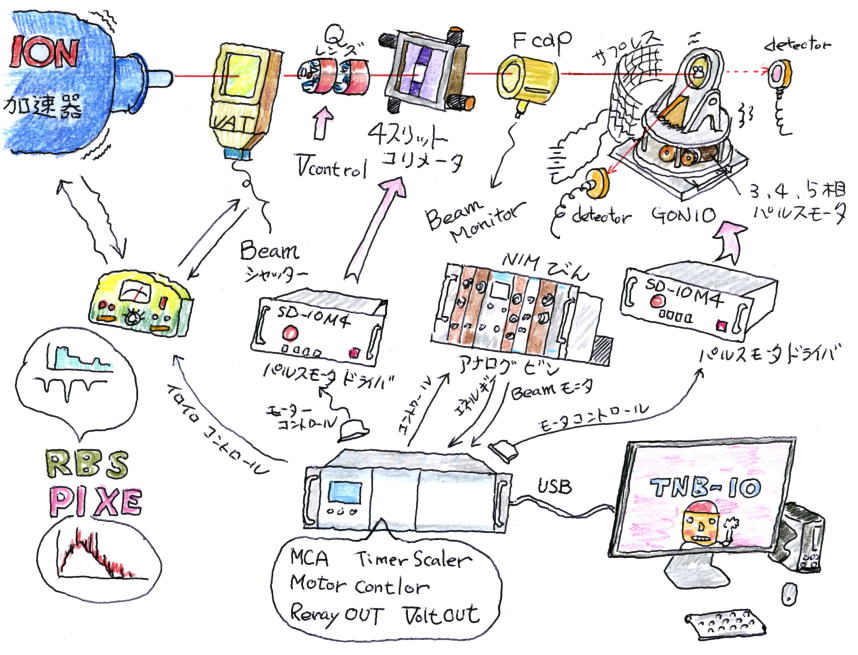 ION
加速器
VAT
Q
レンズ
Vcontrol
4スリット
コリメータ
Fcap
サプレス
detector
detector
GONIO
3,4,5相
パルスモータ
Beam
シャッター
Beam
Monitor
SD-10M4
パルスモータドライバ
NIMびん
アナログビン
SD-10M4
パルスモータドライバ
イロイロ コントロール
モーター
コントロール
コントロール
エネルギ
Beamモニタ
モータコントロール
RBS
PIXE
USB
TNB-10
MCA Timer Scaler
Motor contlor
Reray OUT VoltOUT